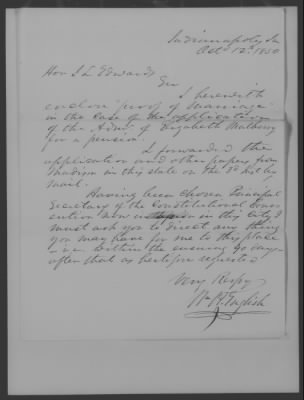 Indianapolis Ia
Oct. 12th 1850
Hon J L Edwards
Sir
I herewith
enclose proof of marriage
in the case of the application
of the Admr of Elizabeth
for a pension.
I forwarded the
application and other papers from
Madison in this state on the 3d inst by
mail.
Having been chosen Principal
Secretary of the Constitutional Con-
vention now in session in this City I
must ask you to direct any thing
you may have for me to this place
i.e. within the ensuing 60 days
after that as heretofore requested
Very Respy
Wm H. English